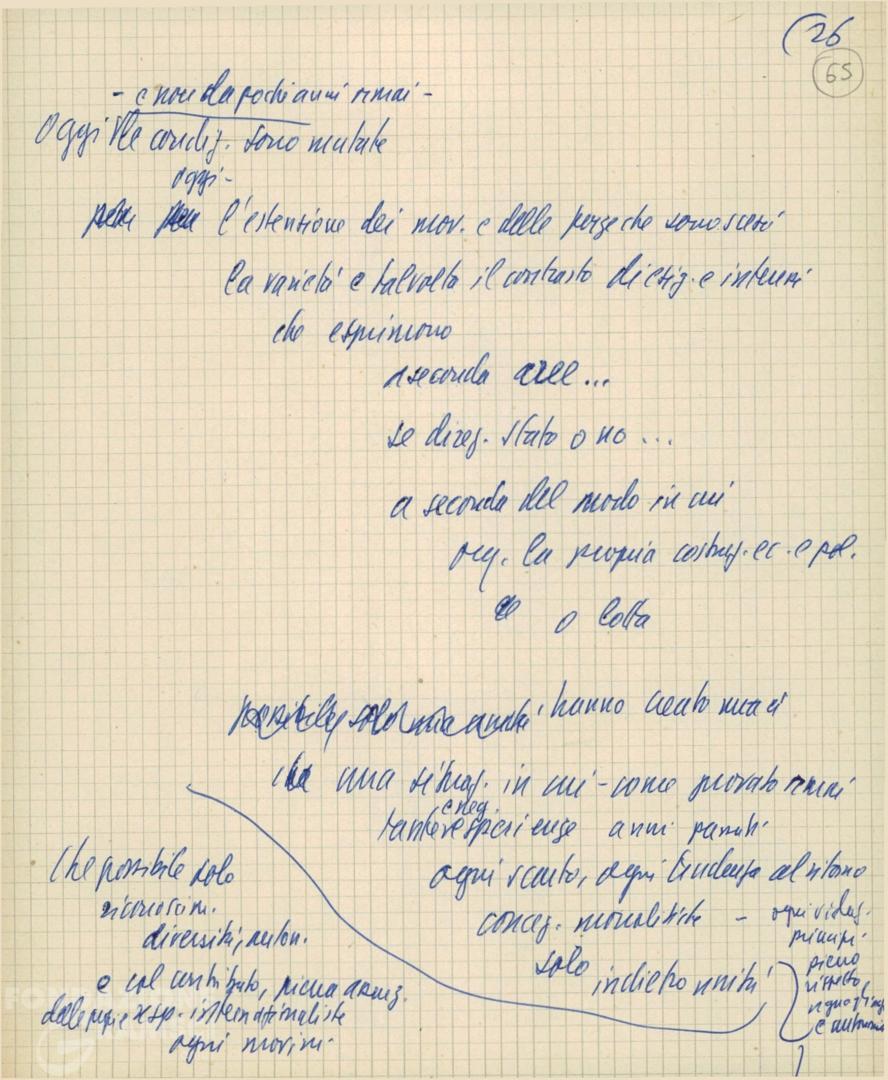 (26
65
- e non da pochi anni ormai -
Oggi le condiz. sono mutate
oggi -
l'estensione dei mov. e delle forze che sono scesi
la varietà e talvolta il contrasto di esig. e interessi
che esprimono
a seconda aree...
se direz. Stato o no...
a seconda del modo in cui
org. la propria costruz. ec. e pol.
o lotta
possibile solo una unità hanno creato
una situaz. in cui - come provato ormai
e neg.
tante esperienze anni passati
ogni scarto, ogni tendenza al ritorno
concez. monolitiche - ogni viol.
principi
pieno
rispetto
eguaglianza
e autonomia
solo indietro unità
che possibile solo
riconoscim.
diversità, auton.
e col contributo, piena assunz.
delle proprie resp. internazionaliste
ogni movim.